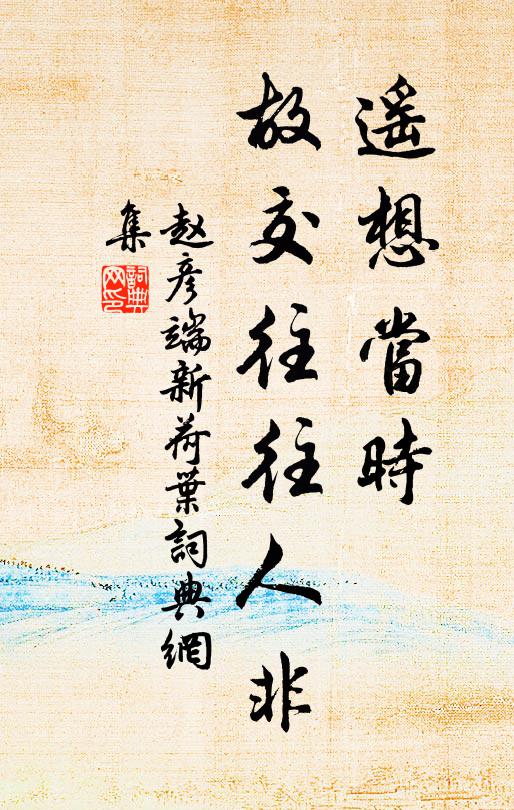 遥想當時
故交往往人非
赵彦端新荷葉詞典網
集
詞典
网印